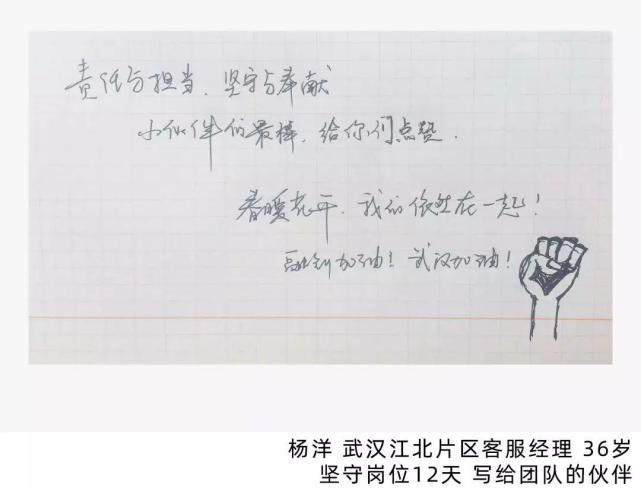 责任与担当、坚守与奉献
小伙伴们最棒、给你们点赞.
春暖花开、我们依然在一起!
融创加油! 武汉加油!
杨洋 武汉江北片区客服经理 36岁
坚守岗位12天 写给团队的伙伴